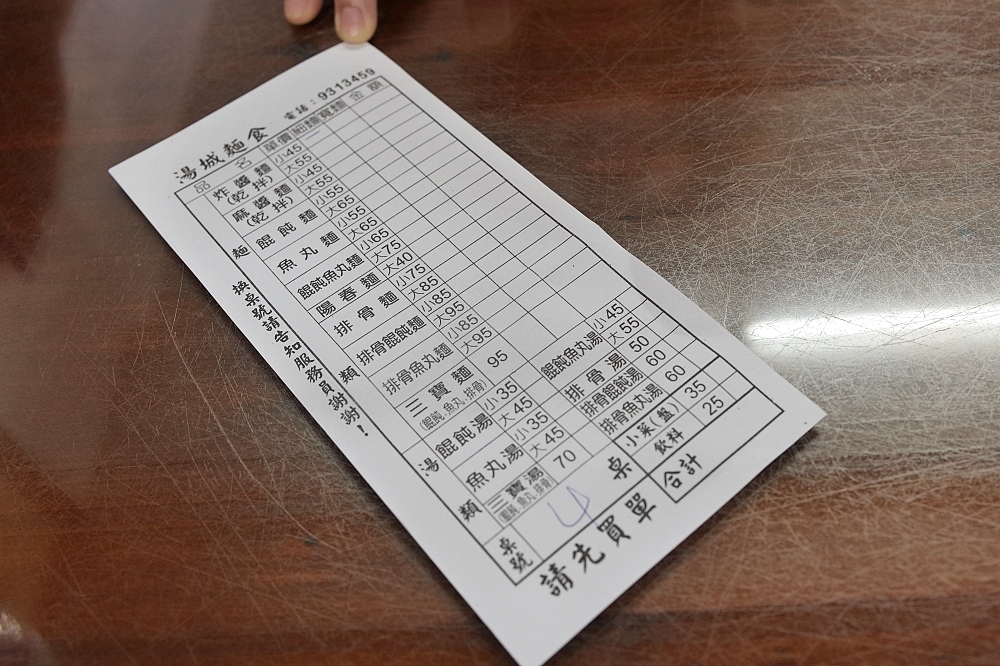 湯城麵食 電話：9313459
品名 單價 細麵 寬麵 金額
麵類
炸醬麵(乾拌) 小45
大55
麻醬麵(乾拌) 小45
大55
餛飩麵 小55
大65
魚丸麵 小55
大65
餛飩魚丸麵 小65
大75
陽春麵 大40
排骨麵 小75
大85
排骨餛飩麵 小85
大95
排骨魚丸麵 小85
大95
三寶麵(餛飩.魚丸.排骨) 95
湯類
餛飩湯 小35
大45
魚丸湯 小35
大45
三寶湯(餛飩.魚丸.排骨) 70
餛飩魚丸湯 小45
大55
排骨湯 50
排骨餛飩湯 60
排骨魚丸湯 60
小菜(盤) 35
飲料 25
桌號 4 桌
合計
請先買單
換桌號請告知服務員謝謝！